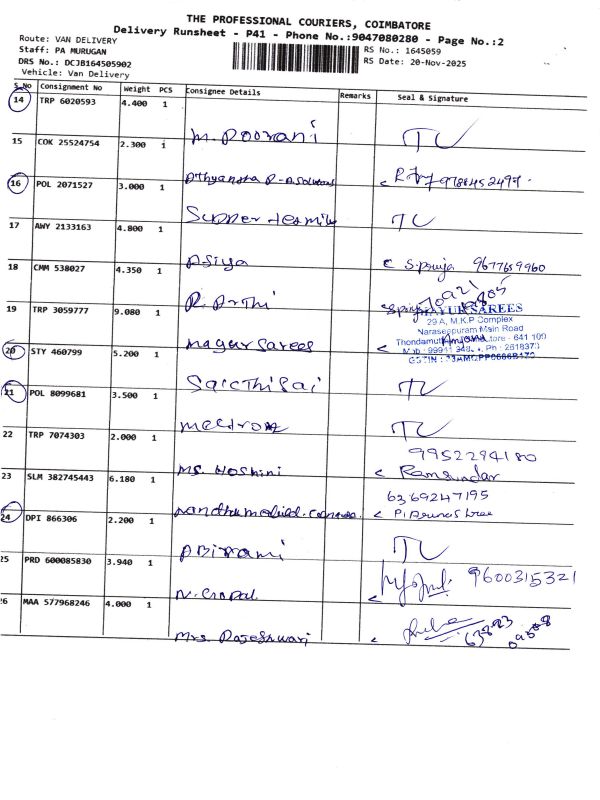 THE PROFESSIONAL COURIERS, COIMBATORE
Delivery Runsheet - P41 - Phone No.:9047080280 - Page No.:2
Route: VAN DELIVERY
Staff: PA MURUGAN
DRS No.: DCJB164505902
Vehicle: Van Delivery
RS No.: 1645059
RS Date: 20-Nov-2025
S.No Consignment No Weight PCS Consignee Details Remarks Seal & Signature
14 TRP 6020593 4.400 1
M. Poorani TC
15 COK 25524754 2.300 1
16 POL 2071527 3.000 1
TC
17 AWY 2133163 4.800 1
Asiya S. 9677659960
18 CMM 538027 4.350 1
R. Arthi
19 TRP 3059777 9.080 1
mayur sarees
MAYUR SAREES
29 A, M.K.P Complex
Naraseepuram Main Road
20 STY 460799 5.200 1
TC
21 POL 8099681 3.500 1
TC
22 TRP 7074303 2.000 1
9952294180
Ms. Hoshini Ramsundar
23 SLM 382745443 6.180 1
6369247195
24 DPI 866306 2.200 1
Abirami TC
25 PRD 600085830 3.940 1
N. Gopal 9600315321
26 MAA 577968246 4.000 1
Mrs. Rajeshwari